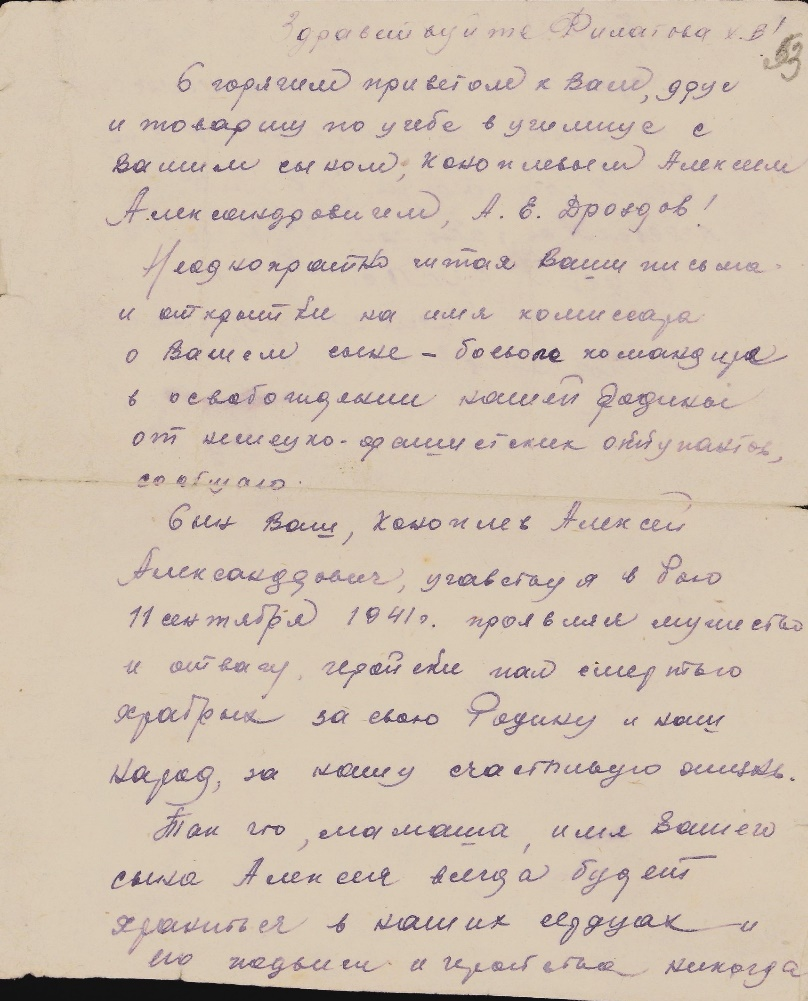 Здравствуйте Филатова Х.В!
53
С горячим приветом к Вам, друг
и товарищ по учебе в училище с
Вашим сыном, Коноплевым Алексеем
Александровичем, А. Е. Дроздов!
Неоднократно читая Ваши письма
и открытки на имя комиссара
о Вашем сыне – боевого командира
в освобождении нашей Родины
от немецко-фашистских оккупантов,
сообщаю.
Сын Ваш, Коноплев Алексей
Александрович, участвуя в бою
11 сентября 1941 г. проявляя мужество
и отвагу, геройски пал смертью
храбрых за свою Родину и наш
народ, за нашу счастливую жизнь.
Так что, мамаша, имя Вашего
сына Алексея всегда будет
храниться в наших сердцах и
его подвиги и геройства никогда